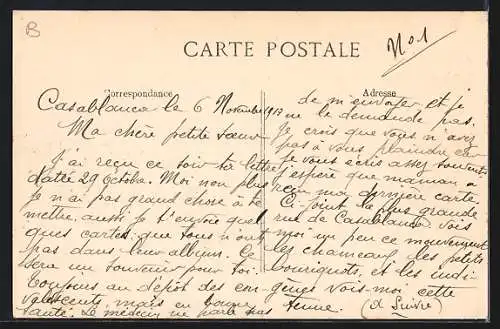 B
CARTE POSTALE
No 1
Correspondance
Adresse
Casablanca le 6 Novembre 1913
Ma chère petite sœur
J'ai reçu ce soir ta lettre
datée 29 Octobre. Moi non plus
je n'ai pas grand chose à te
mettre, aussi je t'envoie quel
ques cartes, que tous n'ont
pas dans leur album. Ce
sera un souvenir pour toi.
toujours au dépôt des con
valescents, mais en bonne
santé. Le médecin ne parle pas
de m'envoyer, et je
ne le demande pas.
Je crois que vous n'avez
pas à vous plaindre car
je vous écris assez souvent.
J'espère que maman a
reçu ma dernière carte.
Ci-joint la plus grande
rue de Casablanca, vois
moi un peu ce mouvement
les chameaux, les petits
bouriquots, et les indi
gènes vois-moi cette
femme. (à Suivre)